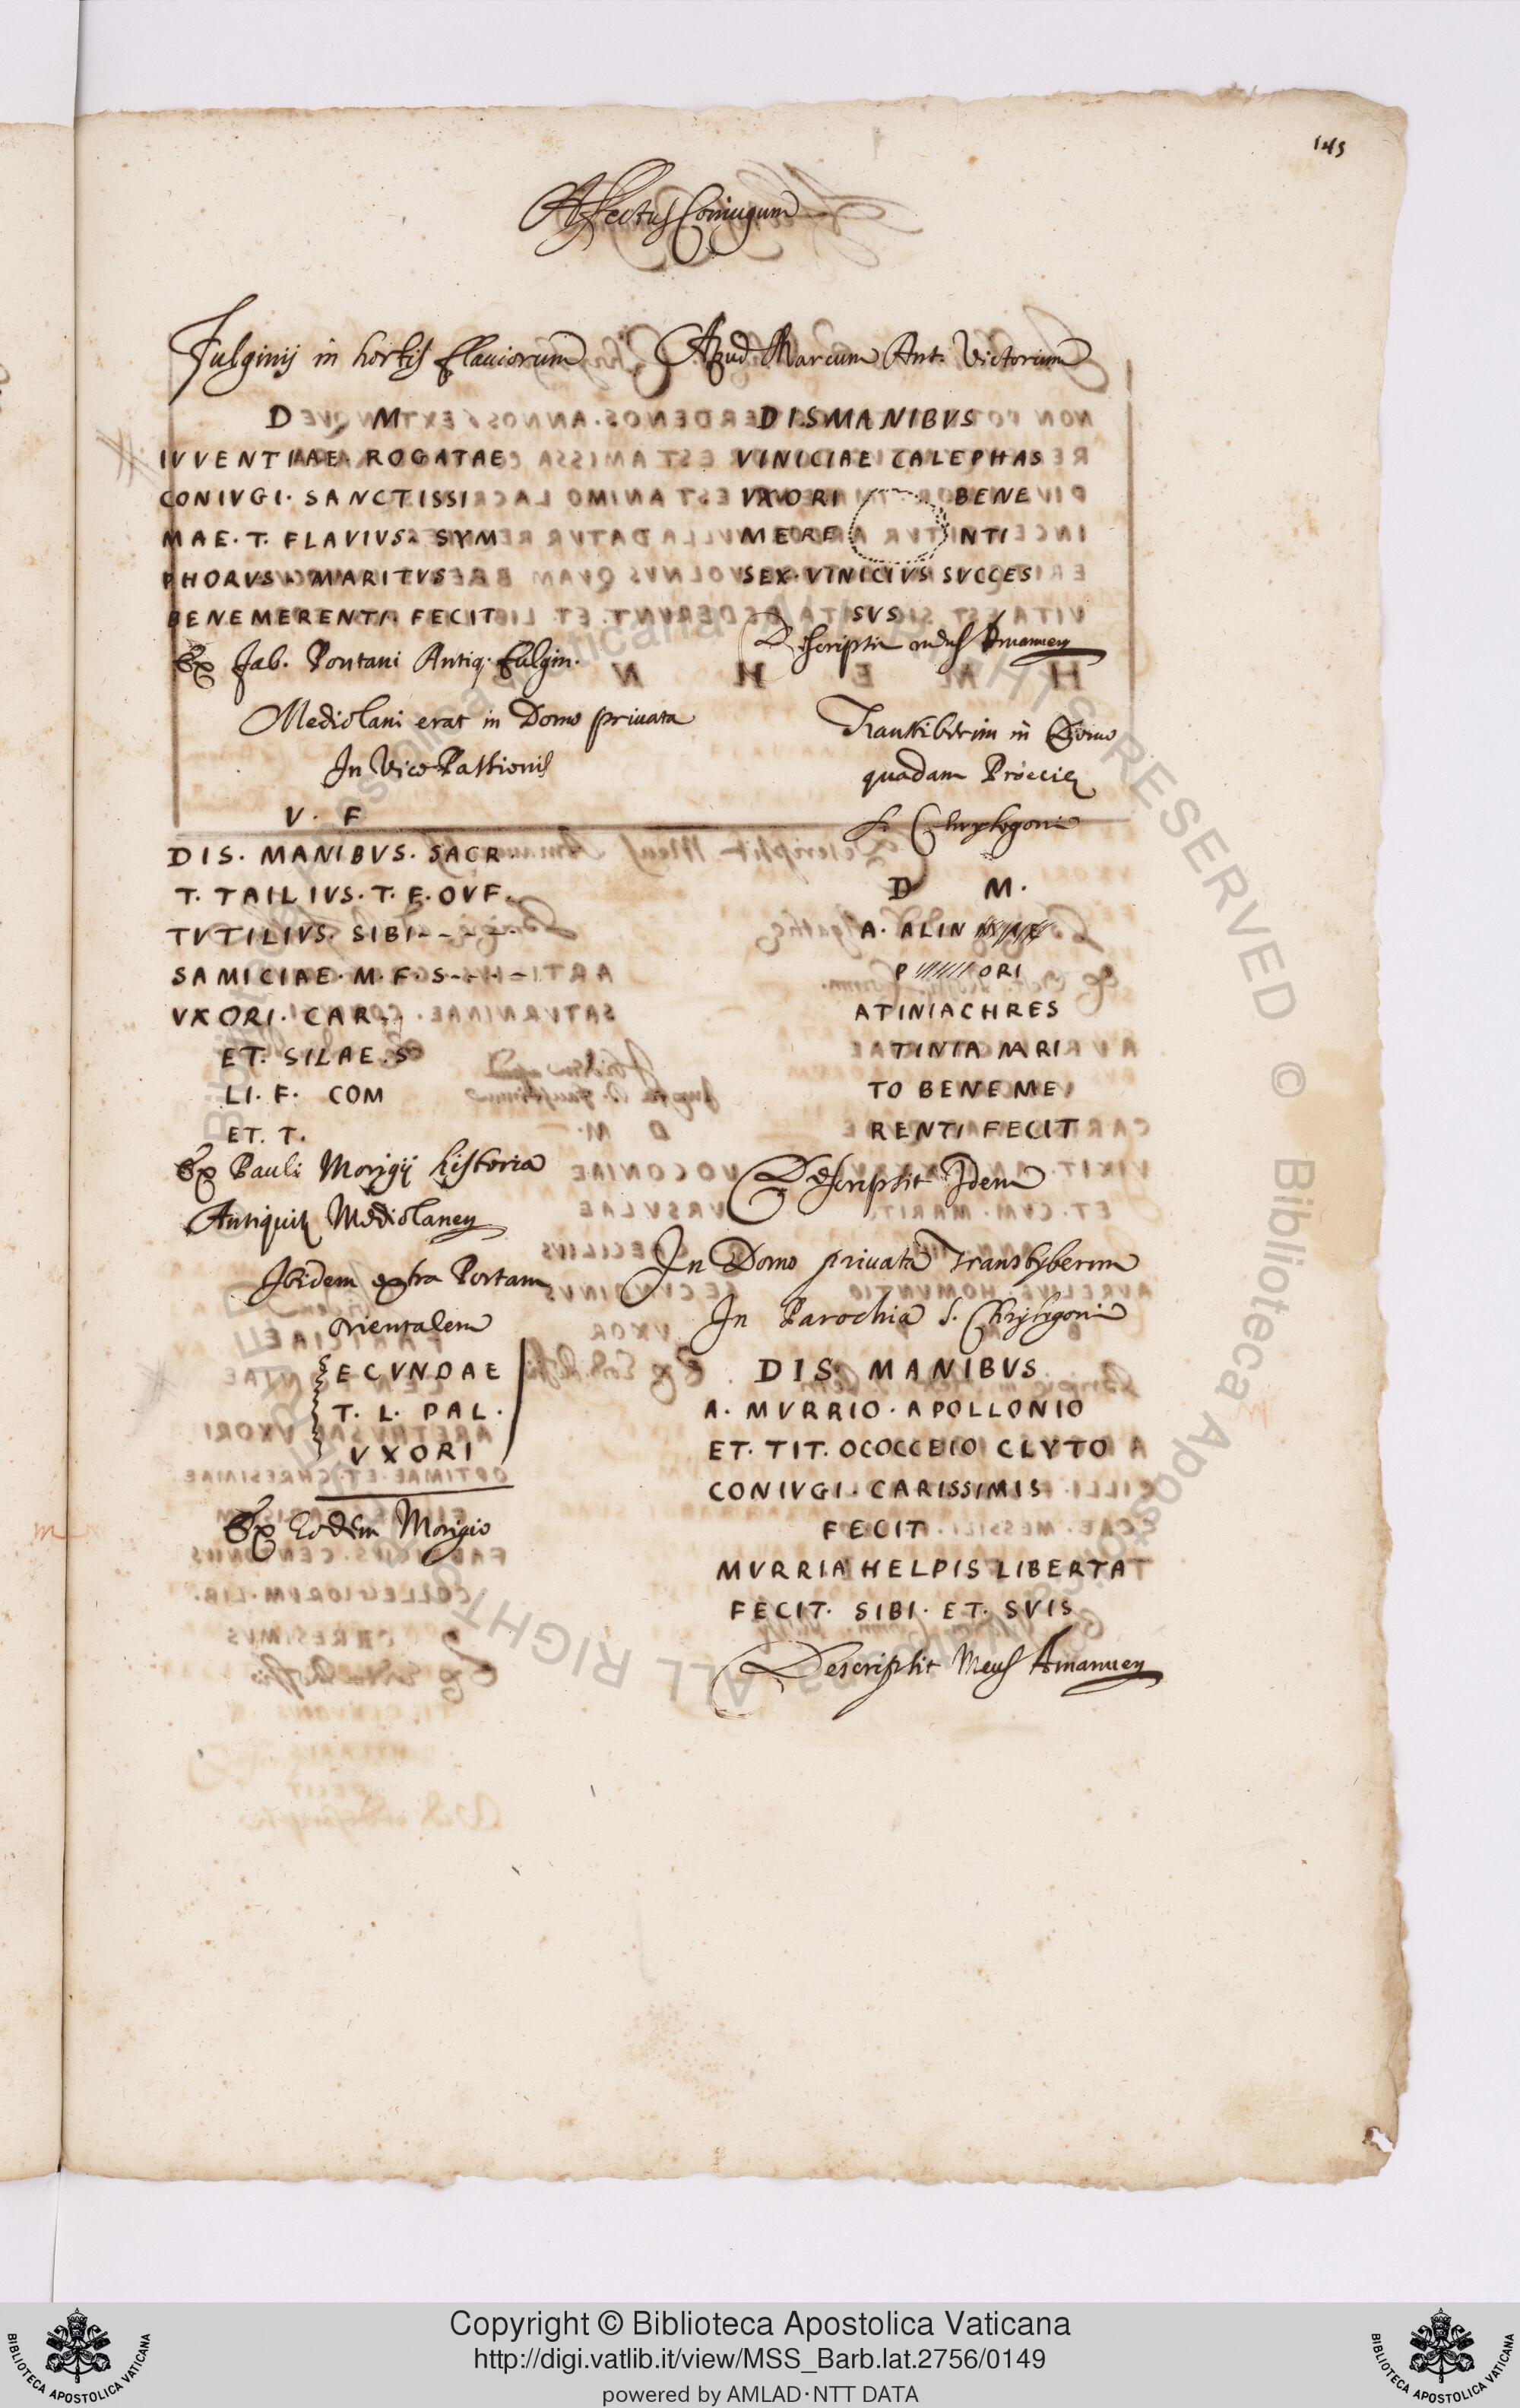 145
Affectus Coniugum
Fulginij in hortis Flauiorum
D M
IVVENTIAE ROGATAE
CONIVGI. SANCTISSI
MAE. T. FLAVIVS. SYM
PHORVS. MARITVS
BENEMERENTI. FECIT
Ex Jab. Pontani Antiq. Fulgin.
Mediolani erat in Domo priuata
In Vico Passionis
V. F
DIS. MANIBVS. SACR.
T. TAILIVS. T. F. OVF.
TVTILIVS. SIBI - - - -
SAMICIAE. M. F. S - - - -
VXORI. CAR - -
ET. SILAE. S
LI. F. COM
ET. T.
Ex Pauli Morigij historia
Antiquit Mediolanen
Ibidem extra Portam
orientalem
ECVNDAE
T. L. PAL.
VXORI
Ex Eodem Morigio
Apud Marcum Ant. Victorium
DIS MANIBVS
VINICIAE CALEPHAS
VXORI BENE
MERE NTI
SEX. VINICIVS SVCCES
SVS
Descriptit meus Amanuen
Transtiberim in Domo
quadam Proecie
S. Chrysogoni
D M.
A. ALIN
P ////// ORI
ATINIACHRES
TINIA MARI
TO BENEME
RENTI FECIT
Descripsit Idem
In Domo priuata Transtyberim
In Parochia S. Chrysogoni
DIS MANIBVS
A. MVRRIO. APOLLONIO
ET. TIT. OCOCCEIO CLYTO
CONIVGI. CARISSIMIS
FECIT
MVRRIA HELPIS LIBERTA
FECIT. SIBI. ET. SVIS
Descripsit Meus Amanuen
Copyright © Biblioteca Apostolica Vaticana
http://digi.vatlib.it/view/MSS_Barb.lat.2756/0149
powered by AMLAD·NTT DATA
BIBLIOTECA APOSTOLICA VATICANA
BIBLIOTECA APOSTOLICA VATICANA